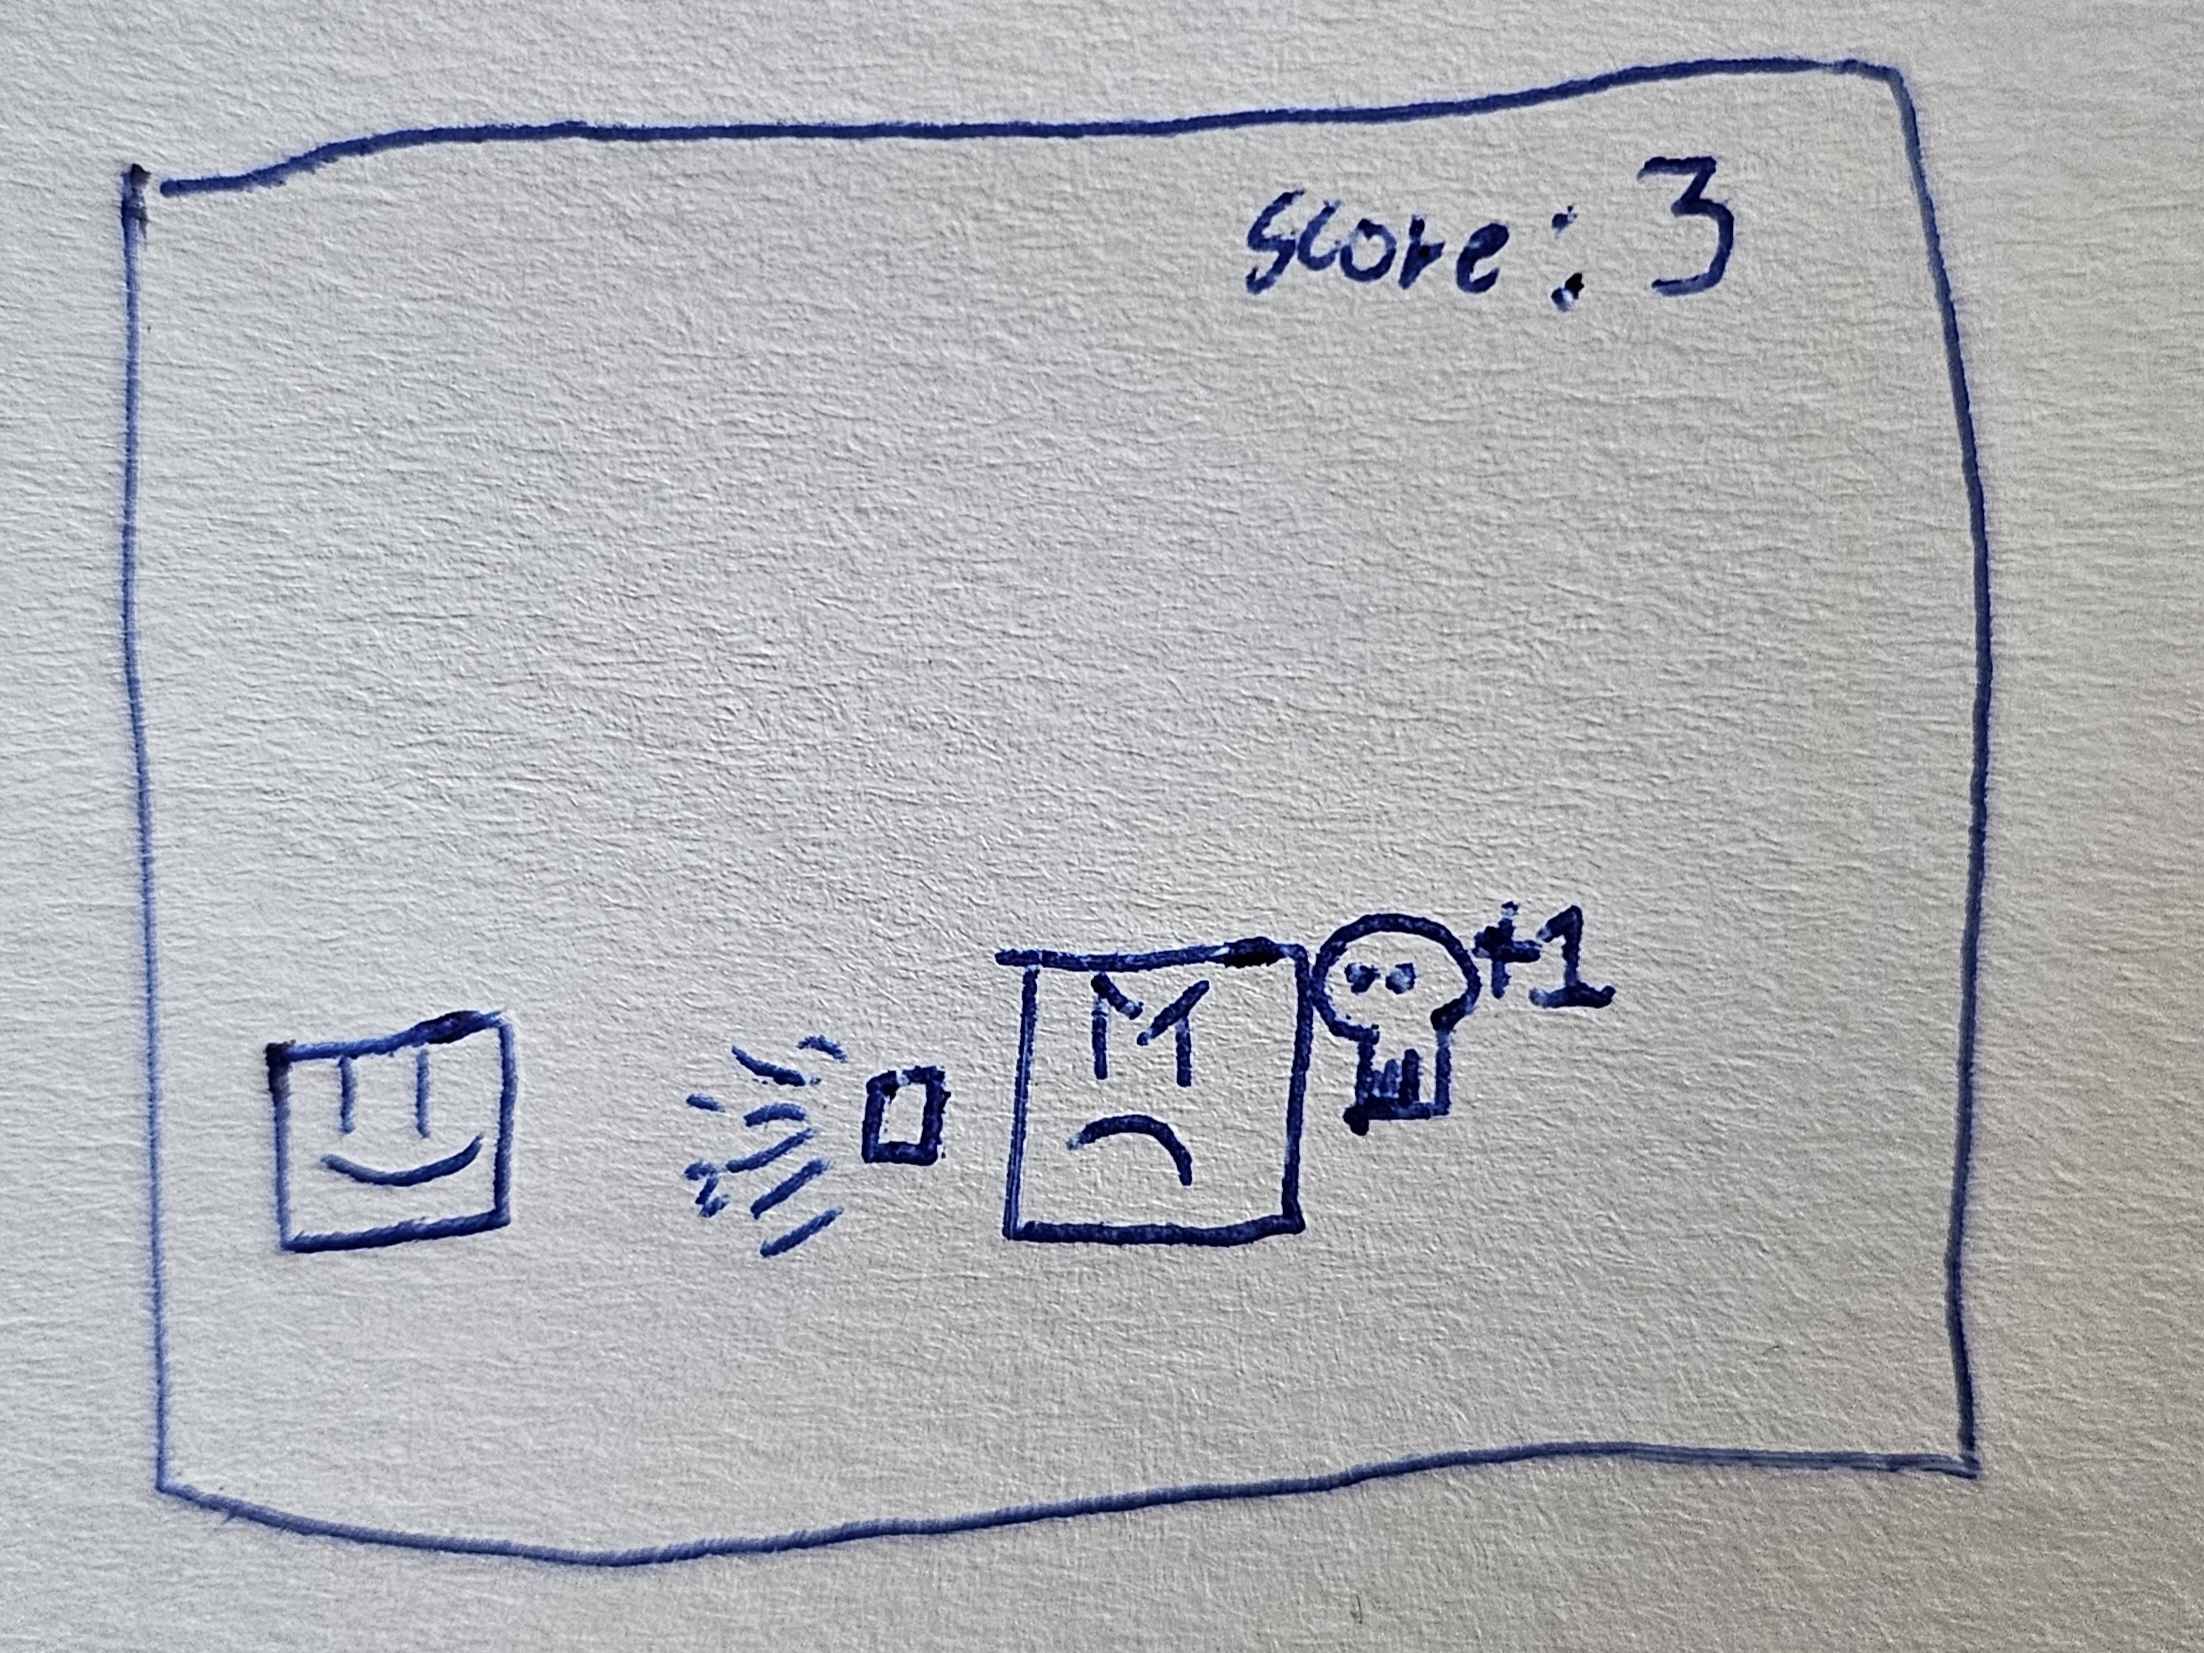 score: 3
+1